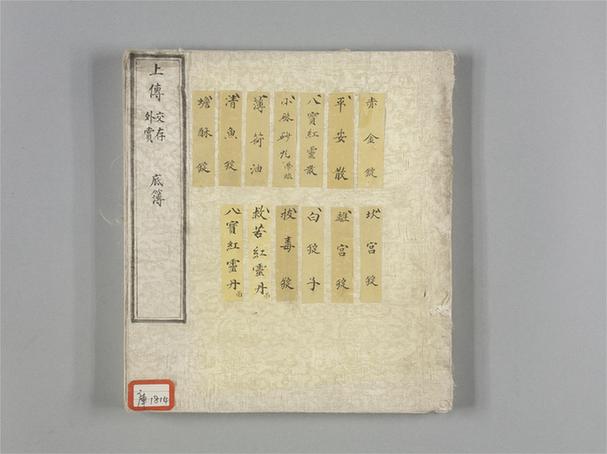 上傳
交存
外賞
底簿
赤金錠
平安散
八寶紅靈散
小硃砂丸
薄荷油
清魚錠
蟾酥錠
坎宮錠
離宮錠
白錠子
拔毒錠
救苦紅靈丹
八寶紅靈丹
1814